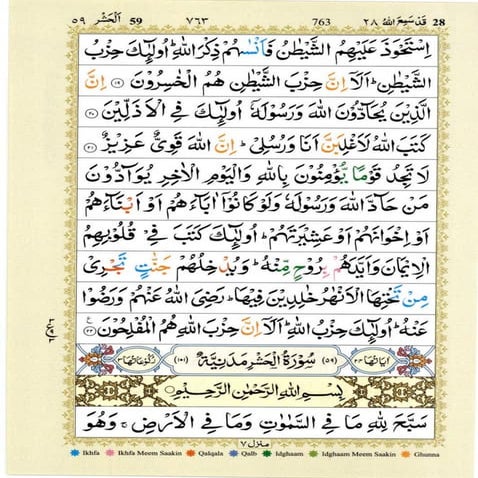 ٥٩ اَلْحَشْر 59 ٧٦٣ 763 قَدْ سَمِعَ اللّٰهُ ٢٨ 28
اِسْتَحْوَذَ عَلَيْهِمُ الشَّيْطٰنُ فَاَنْسٰىهُمْ ذِكْرَ اللّٰهِ ؕ اُولٰٓئِكَ حِزْبُ
الشَّيْطٰنِ ؕ اَلَاۤ اِنَّ حِزْبَ الشَّيْطٰنِ هُمُ الْخٰسِرُوْنَ ﴿۱۹﴾ اِنَّ
الَّذِيْنَ يُحَآدُّوْنَ اللّٰهَ وَرَسُوْلَهٗۤ اُولٰٓئِكَ فِى الْاَذَلِّيْنَ ﴿۲۰﴾
كَتَبَ اللّٰهُ لَاَغْلِبَنَّ اَنَا وَرُسُلِىْ ؕ اِنَّ اللّٰهَ قَوِىٌّ عَزِيْزٌ ﴿۲۱﴾
لَا تَجِدُ قَوْمًا يُّؤْمِنُوْنَ بِاللّٰهِ وَالْيَوْمِ الْاٰخِرِ يُوَآدُّوْنَ
مَنْ حَآدَّ اللّٰهَ وَرَسُوْلَهٗ وَلَوْ كَانُوْۤا اٰبَآءَهُمْ اَوْ اَبْنَآءَهُمْ
اَوْ اِخْوَانَهُمْ اَوْ عَشِيْرَتَهُمْ ؕ اُولٰٓئِكَ كَتَبَ فِىْ قُلُوْبِهِمُ
الْاِيْمَانَ وَاَيَّدَهُمْ بِرُوْحٍ مِّنْهُ ؕ وَيُدْخِلُهُمْ جَنّٰتٍ تَجْرِىْ
مِنْ تَحْتِهَا الْاَنْهٰرُ خٰلِدِيْنَ فِيْهَا ؕ رَضِىَ اللّٰهُ عَنْهُمْ وَرَضُوْا
عَنْهُ ؕ اُولٰٓئِكَ حِزْبُ اللّٰهِ ؕ اَلَاۤ اِنَّ حِزْبَ اللّٰهِ هُمُ الْمُفْلِحُوْنَ ﴿۲۲﴾
اٰيَاتُهَا ٢٤ (٥٩) سُوْرَةُ الْحَشْرِ مَدَنِيَّةٌ (١٠١) رُكُوْعَاتُهَا ٣
بِسْمِ اللّٰهِ الرَّحْمٰنِ الرَّحِيْمِ
سَبَّحَ لِلّٰهِ مَا فِى السَّمٰوٰتِ وَمَا فِى الْاَرْضِ ۚ وَهُوَ
منزل ٧
Ikhfa Ikhfa Meem Saakin Qalqala Qalb Idghaam Idghaam Meem Saakin Ghunna